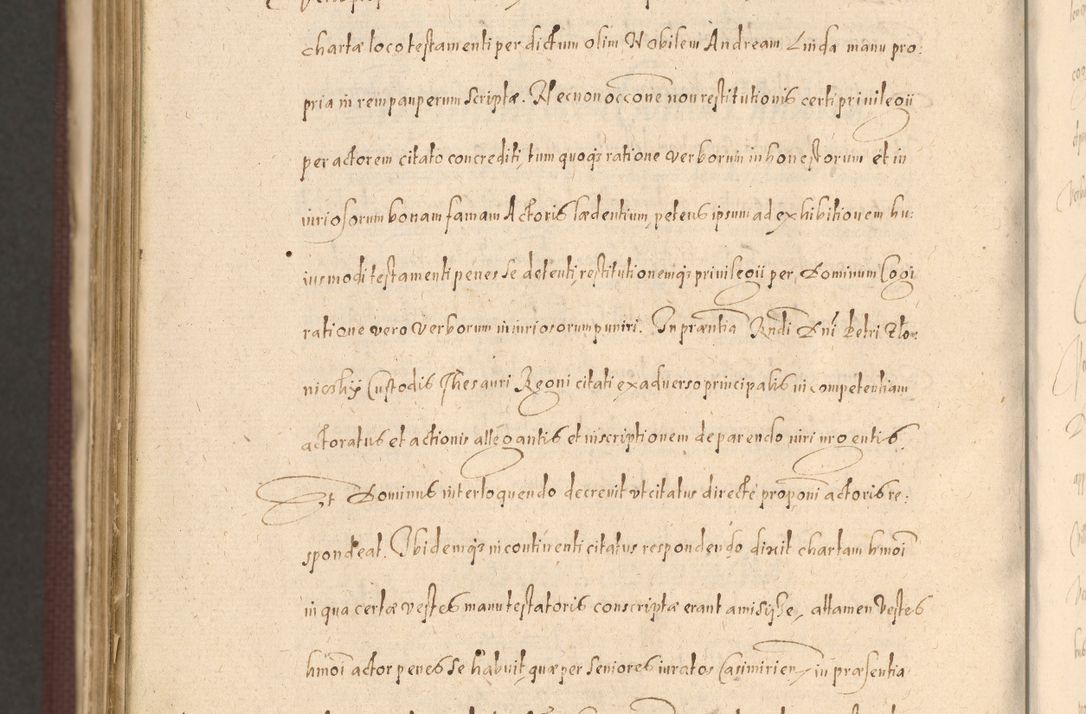 chartæ loco testamenti per dictum olim Nobilem Andream Linda manu pro:
pria in rem pauperum scriptæ. Necnon occone non restitutionis certi privilegii
per actorem citato concrediti, tum quoqz ratione verborum inhonestorum et in
iuriosorum bonam famam Actoris lædentium, petens ipsum ad exhibitionem hu:
iusmodi testamenti penes se detenti, restitutionemqz privilegii per Dominum Cogi
ratione vero verborum iniuriosorum puniri. In præntia Rndi Dni Petri
Custodis Thesauri Regni citati ex adverso principalis incompetentiam
actoratus et actionis allegantis et inscriptionem de parendo iuri urgentis
Et Dominus interloquendo decrevit ut citatus directe proponi actoris re:
spondeat. Ibidemqz incontinenti citatus respondendo dixit chartam hmoi
in qua certæ vestes manu testatoris conscriptæ erant amisisse, attamen vestes
hmoi actor penes se habuit, quæ per seniores iuratos Casimirien, in præsentia